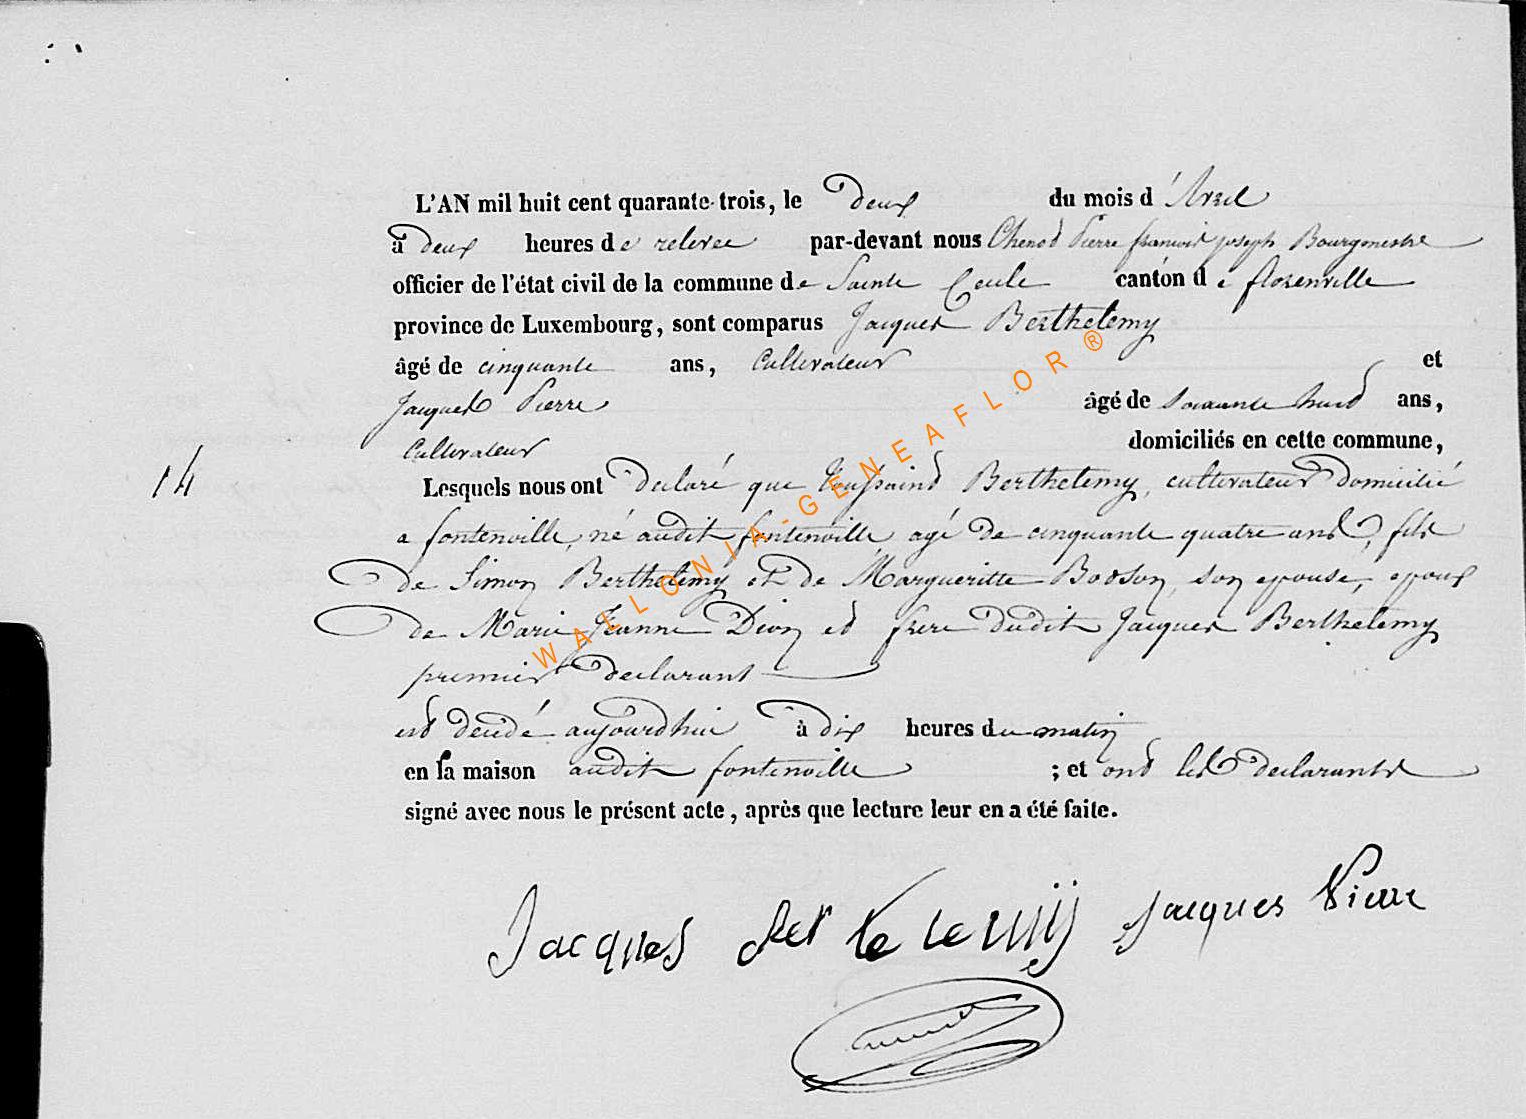 L'AN mil huit cent quarante-trois, le deux du mois d'Avril
à deux heures de relevee par-devant nous Pierre francois joseph Bourgmestre
officier de l'état civil de la commune de Sainte Cecile canton de florenville
province de Luxembourg, sont comparus Jacques Berthelemy
âgé de cinquante ans, Cultivateur et
Jacques Pierre âgé de soixante huit ans,
Cultivateur domiciliés en cette commune,
14 Lesquels nous ont declaré que Toussaint Berthelemy, cultivateur domicilié
a fontenoille, né audit fontenoille, agé de cinquante quatre ans, fils
de Simon Berthelemy et de Margueritte Bodson, son epouse, epoux
de Marie Jeanne Dion et frere dudit Jacques Berthelemy
premier declarant
est decedé aujourdhui à dix heures du matin
en la maison audit fontenoille ; et ont les declarants
signé avec nous le présent acte, après que lecture leur en a été faite.
Jacques jacques Pierre
WALLONIA-GENEAFLOR ®